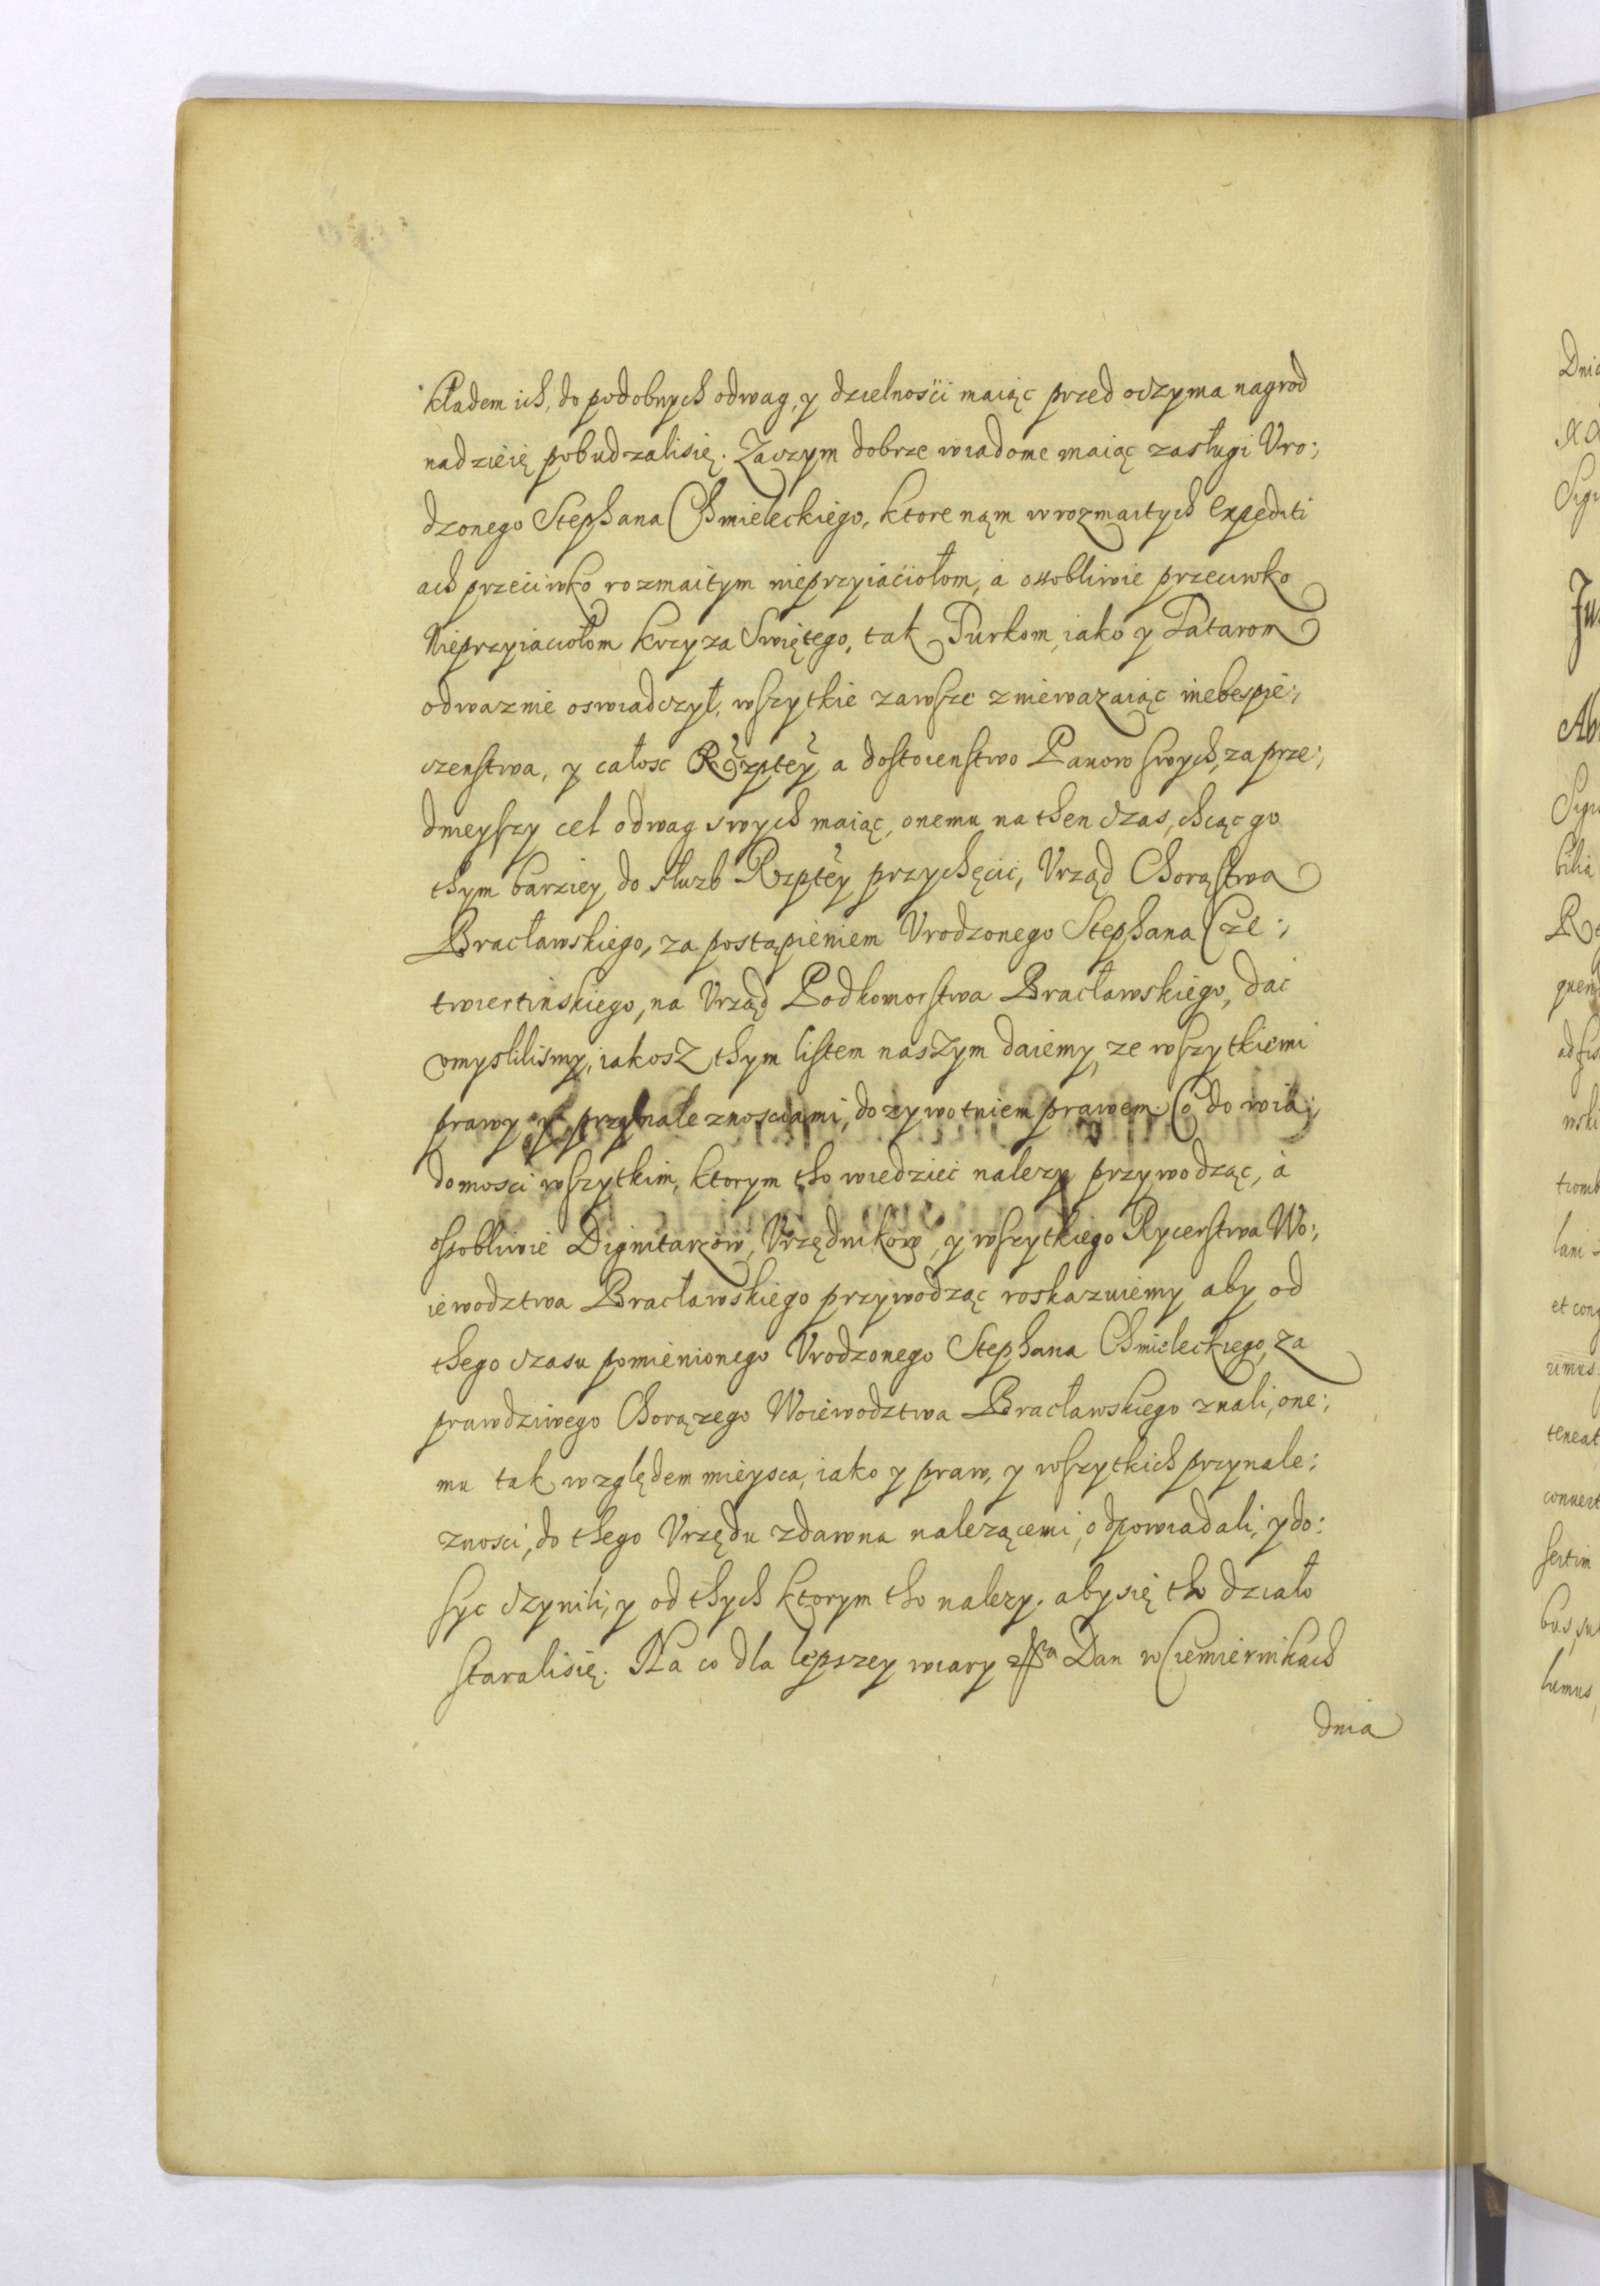 kładem ich, do podobnych odwag, y dzielnosci maiąc przed oczyma nagrod
nadzieię pobudzalisię. Zaczym dobrze wiadome maiąc zasługi Vro:
dzonego Stephana Chmieleckiego, ktore nąm w rozmaitych Expediti
ach przeciwko rozmaitym nieprzyiaciołom, a osobliwie przeciwko
Nieprzyiaciołom krzyza Swiętego, tak Turkom, iako y Tatarom
odwaznie oswiadczył, wszytkie zawsze zniewazaiąc niebespie:
czenstwa, y całosc Rzptey a dostoienstwo Panow swych, za prze:
dnieyszy cel odwag swych maiąc, onemu na then czas, chcąc go
thym barziey do słuzb Rzptey przychęcic, Vrząd Chorąstwa
Bracławskiego, za postąpieniem Vrodzonego Stephana Cze:
twiertinskiego, na Vrząd Podkomorstwa Bracławskiego, dac
vmyslilismy, iakosz thym listem naszym daiemy, ze wszytkiemi
prawy y przynaleznosciami, dozywotniem prawem. Co do wia:
domosci wszytkim, ktorym tho wiedziec nalezy przywodząc, a
osobliwie Dignitarzow, Vrzędnikow, y wszytkiego Rycerstwa Wo:
iewodztwa Bracławskiego przywodząc roskazuiemy aby od
thego czasu pomienionego Vrodzonego Stephana Chmieleckiego, za
prawdziwego Chorązego Woiewodztwa Bracławskiego znali, one:
mu tak względem mieysca, iako y praw, y wszytkich przynale:
znosci, do thego Vrzędu zdawna nalezącemi, odpowiadali, y do:
syc czynili, y od thych ktorym tho nalezy. aby się tho działo
staralisię. Na co dla lepszey wiary Dan w Ciemiernikach
dnia